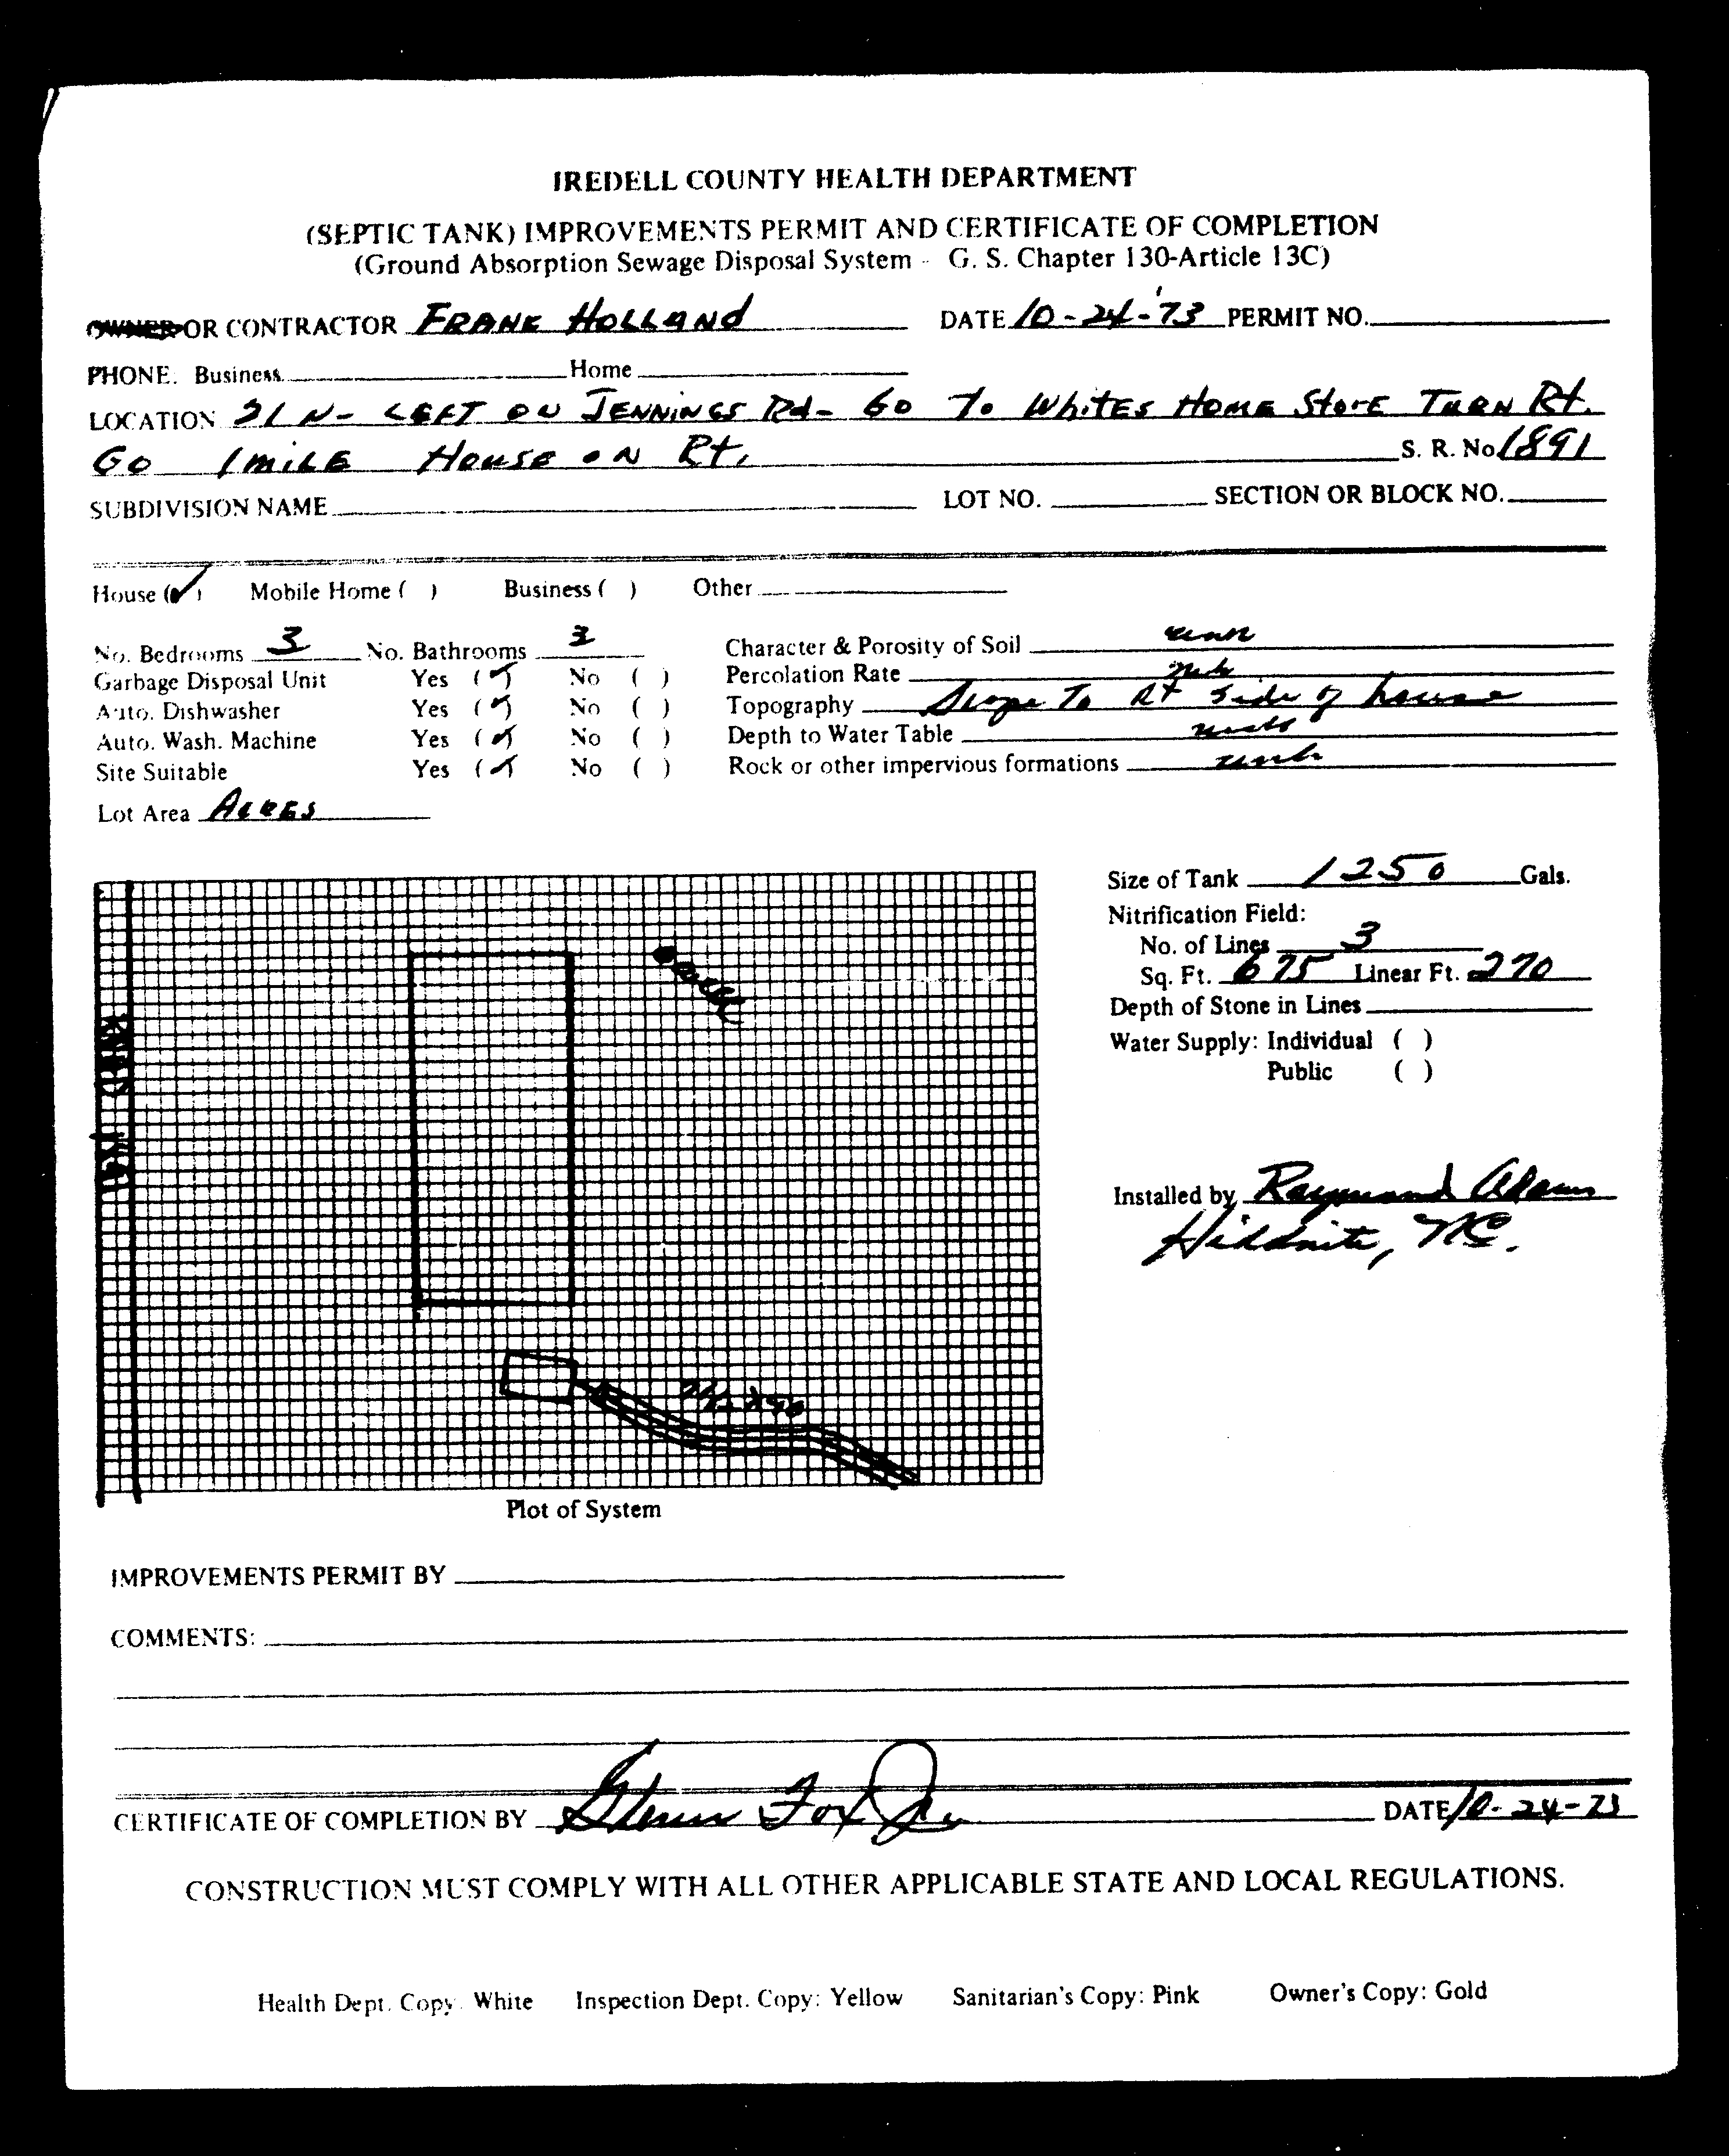 IREDELL COUNTY HEALTH DEPARTMENT
(SEPTIC TANK) IMPROVEMENTS PERMIT AND CERTIFICATE OF COMPLETION
(Ground Absorption Sewage Disposal System - G. S. Chapter 130-Article 13C)
OWNER OR CONTRACTOR FRANK HOLLAND DATE 10-24-'73 PERMIT NO.
PHONE: Business Home
LOCATION 21 N- LEFT ON JENNINGS Rd- GO To WhiTES HOME StorE TURN Rt.
GO 1 miLE HousE oN Rt. S. R. No. 1891
SUBDIVISION NAME LOT NO. SECTION OR BLOCK NO.
House (✓) Mobile Home ( ) Business ( ) Other
No. Bedrooms 3 No. Bathrooms 3 Character & Porosity of Soil
Garbage Disposal Unit Yes (✓) No ( ) Percolation Rate
Auto. Dishwasher Yes (✓) No ( ) Topography Slope To Rt side of house
Auto. Wash. Machine Yes (✓) No ( ) Depth to Water Table
Site Suitable Yes (✓) No ( ) Rock or other impervious formations
Lot Area ACRES
Size of Tank 1250 Gals.
Nitrification Field:
No. of Lines 3
Sq. Ft. 675 Linear Ft. 270
Depth of Stone in Lines
Water Supply: Individual ( )
Public ( )
well
Installed by Raymond Adams
Hiddnite, NC.
Plot of System
IMPROVEMENTS PERMIT BY
COMMENTS:
CERTIFICATE OF COMPLETION BY Glenn Fox Jr. DATE 10-24-73
CONSTRUCTION MUST COMPLY WITH ALL OTHER APPLICABLE STATE AND LOCAL REGULATIONS.
Health Dept. Copy: White Inspection Dept. Copy: Yellow Sanitarian's Copy: Pink Owner's Copy: Gold